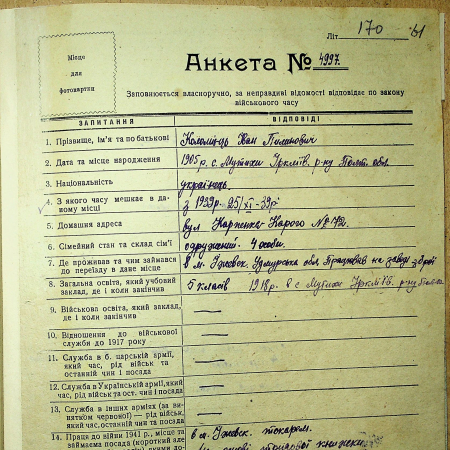 Літ 170 61
Місце
для
фотокартки
Анкета № 4997.
Заповнюється власноручно, за неправдиві відомості відповідає по закону
військового часу
ЗАПИТАННЯ ВІДПОВІДІ
1. Прізвище, ім'я та по батькові Коломієць Іван Пилипович
2. Дата та місце народження 1905 р. с. Мутихи Іркліїв. р-ну Полт. обл.
3. Національність українець
4. З якого часу мешкає в да-
ному місці з 1939р. 25/XI-39р
5. Домашня адреса вул Карпенка-Карого № 72.
6. Сімейний стан та склад сім'ї одружений. 4 особи.
7. Де проживав та чим займався
до переїзду в дане місце в м. Іжевськ. Удмурська обл. Працював на заводі
8. Загальна освіта, який учбовий
заклад, де і коли закінчив 5 класів 1918р. в с Мутихи Іркліїв. р-ну
9. Військова освіта, який заклад,
де і коли закінчив —
10. Відношення до військової
служби до 1917 року —
11. Служба в б. царській армії,
який час, рід військ та
останній чин і посада —
12. Служба в Українській армії, який
час, рід військ та ост. чин і посада —
13. Служба в інших арміях (за ви-
нятком червоної) — рід військ,
який час, останній чин та посада —
14. Праця до війни 1941 р., місце та
займаєма посада (короткий але в м. Іжевськ. токарем.